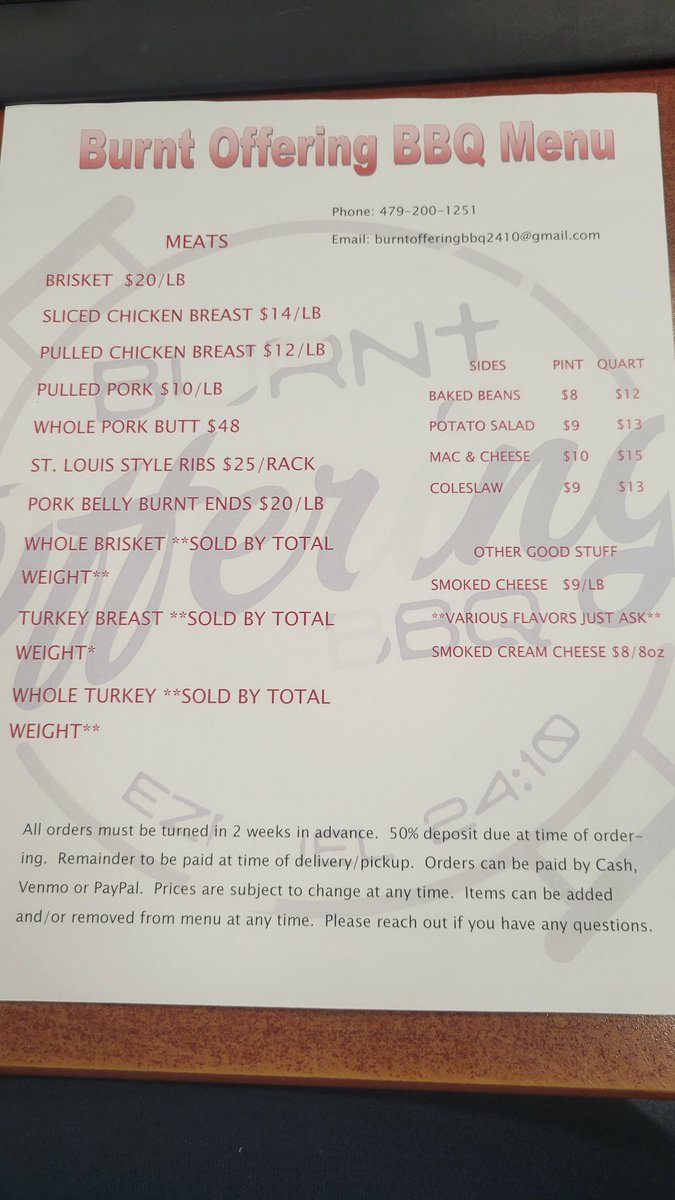 Burnt Offering BBQ Menu
Phone: 479-200-1251
Email: burntofferingbbq2410@gmail.com
MEATS
BRISKET $20/LB
SLICED CHICKEN BREAST $14/LB
PULLED CHICKEN BREAST $12/LB
PULLED PORK $10/LB
WHOLE PORK BUTT $48
ST. LOUIS STYLE RIBS $25/RACK
PORK BELLY BURNT ENDS $20/LB
WHOLE BRISKET **SOLD BY TOTAL
WEIGHT**
TURKEY BREAST **SOLD BY TOTAL
WEIGHT*
WHOLE TURKEY **SOLD BY TOTAL
WEIGHT**
SIDES PINT QUART
BAKED BEANS $8 $12
POTATO SALAD $9 $13
MAC & CHEESE $10 $15
COLESLAW $9 $13
OTHER GOOD STUFF
SMOKED CHEESE $9/LB
**VARIOUS FLAVORS JUST ASK**
SMOKED CREAM CHEESE $8/8oz
BURNT
Offering
BBQ
24:10
All orders must be turned in 2 weeks in advance. 50% deposit due at time of order-
ing. Remainder to be paid at time of delivery/pickup. Orders can be paid by Cash,
Venmo or PayPal. Prices are subject to change at any time. Items can be added
and/or removed from menu at any time. Please reach out if you have any questions.